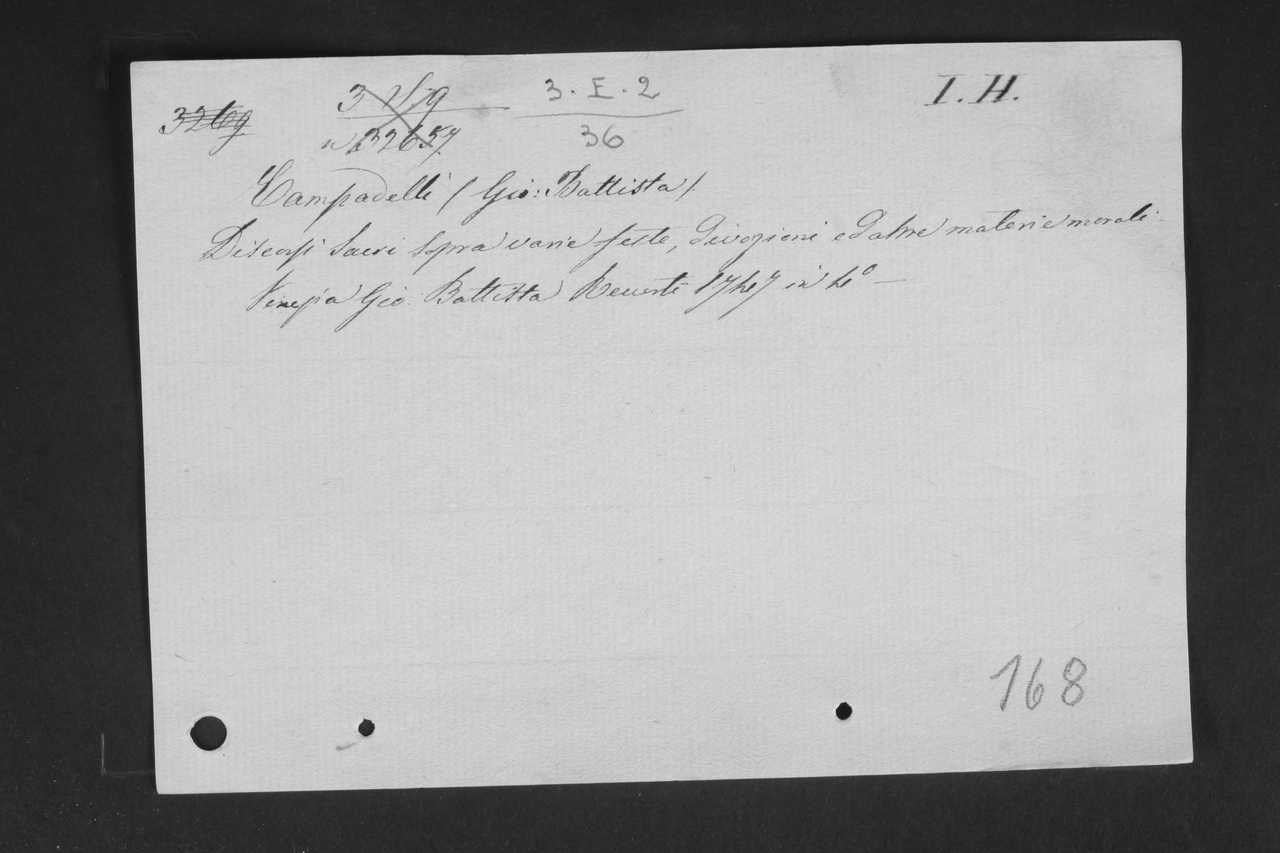 3.E.2
36
I.H.
Campadelli (Gio: Battista)
Discorsi Sacri Sopra varie feste, divozioni ed altre materie morali.
Venezia Gio. Battista 1747 in 4° —
168